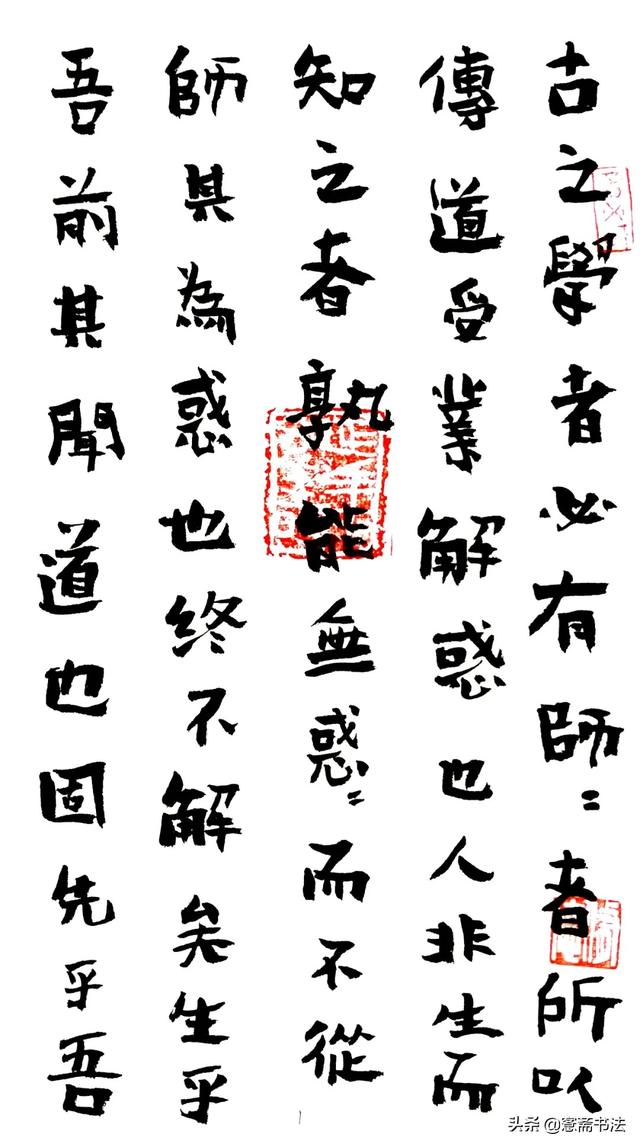 古之學者必有師〻者所以
傳道受業解惑也人非生而
知之者孰能無惑〻而不從
師其為惑也終不解矣生乎
吾前其聞道也固先乎吾
头条 @窓斋书法